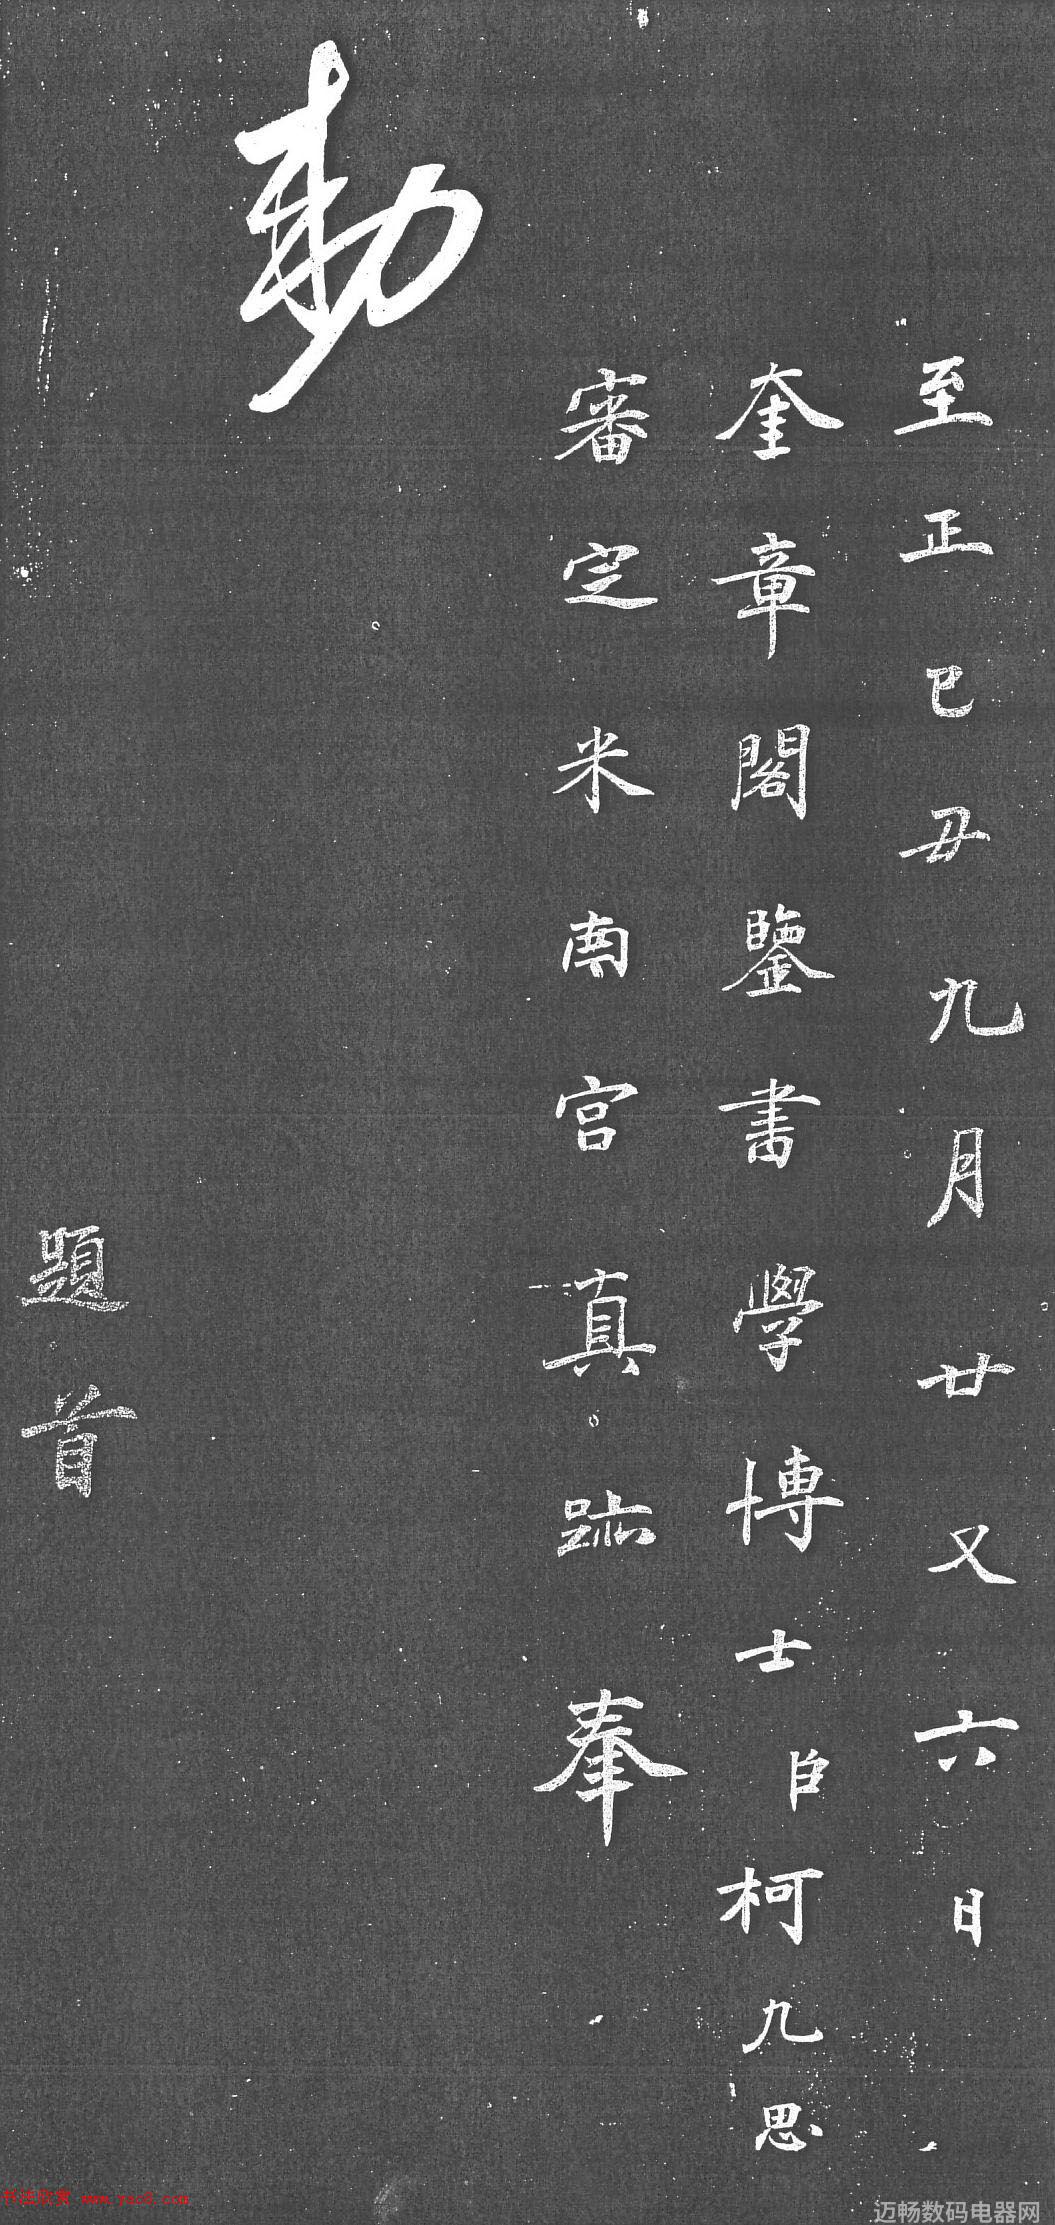 至正己丑九月廿又六日
奎章閣鑒書學博士臣柯九思
審定米南宮真跡奉
勅
題首
书法欣赏 www.yac8.com
迈畅数码电器网